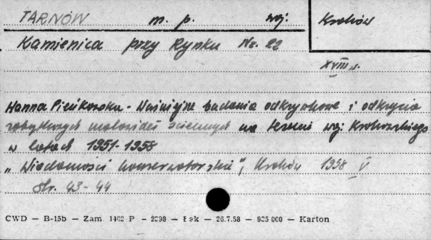 TARNÓW m. p. woj. Kraków
Kamienica przy Rynku Nr. 22
XVIII w.
Hanna Pieńkowska - Ważniejsze badania odkrywkowe i odkrycia
zabytkowych malowideł ściennych na terenie woj. Krakowskiego
w latach 1951-1958
"Wiadomości konserwatorskie", Kraków 1958
str. 43-44
CWD — B-15b — Zam. P — 26.7.58 — Karton